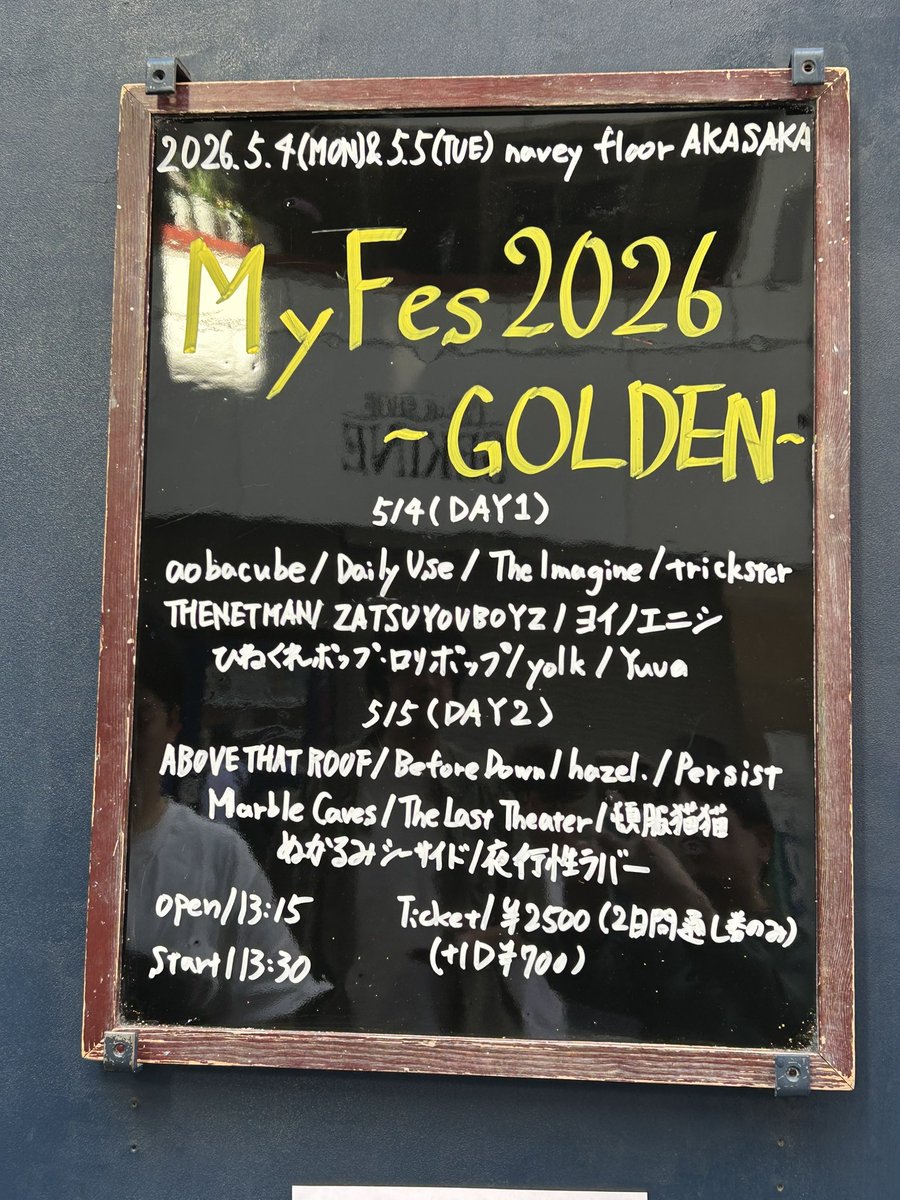 2026.5.4(MON)&5.5(TUE) navey floor AKASAKA
MyFes2026
~GOLDEN~
5/4(DAY1)
aobacube/Daily Use/The Imagine/trickster
THENETMAN/ZATSUYOUBOYZ/ヨイノエニシ
ひねくれポップ・ロリポップ/yolk/Yuva
5/5(DAY2)
ABOVE THAT ROOF/Before Down/hazel./Persist
Marble Caves/The Last Theater/頓服猫猫
ぬかるみシーサイド/夜行性ラバー
open/13:15
Start/13:30
Ticket/¥2500(2日間通し券のみ)
(+1D¥700)